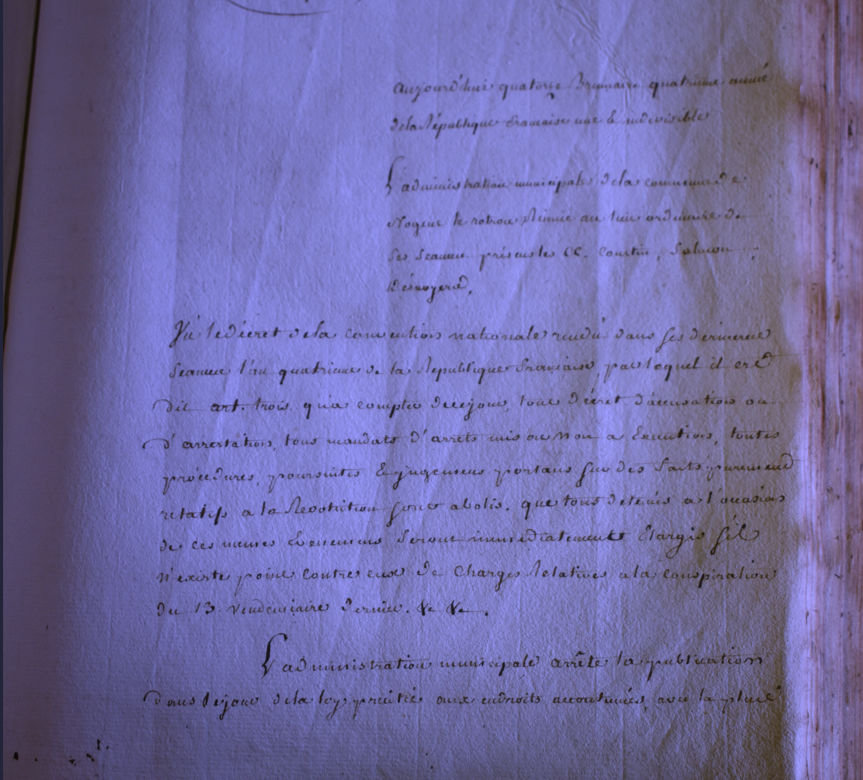 aujourd'huî quatorze Brumaire quatrieme année
de la République française une & indivisible
L'administration municipale de la commune de
Nogent le rotrou Réunie au lieu ordinaire de
ses seances presents les CC. Courtin, Salmon,
Desnoyers.
Vu le décret de la convention nationale rendu dans ses dernieres
seances l'an quatrieme de la République française, par lequel il est
dit art. trois qu'a compter de ce jour, tout décret d'accusation ou
d'arrestation, tous mandats d'arrets mis ou non a Execution, toutes
procedures, poursuites & jugemens portans sur des faits purement
relatifs a la Revolution sont abolis. que tous detenus a l'occasion
de ces memes Evenemens seront immediatement Elargis s'il
n'existe point contre eux de charges Relatives a la conspiration
du 13 vendemiaire dernier. &c &c.
L'administration municipale arrête la publication
dans le jour de la loy precitée aux endroits accoutumés, avec la plus